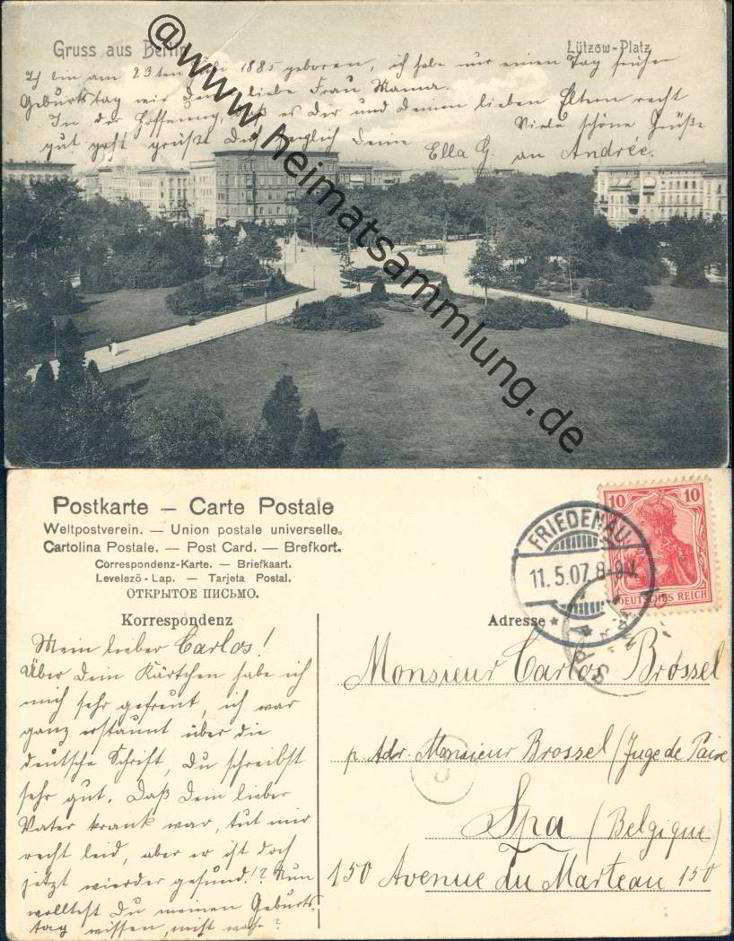 Gruss aus Berlin
Lützow-Platz
Ich bin am 23ten Juli 1885 geboren, ich habe nur einen Tag früher
Geburtstag wie Deine liebe Frau Mama.
In der Hoffnung, daß es Dir und Deinen lieben Eltern recht
gut geht grüßt Dich herzlich Deine
Viele schöne Grüße
Ella G. an Andrée.
@www.heimatsammlung.de
Postkarte — Carte Postale
Weltpostverein. — Union postale universelle.
Cartolina Postale. — Post Card. — Brefkort.
Correspondenz-Karte. — Briefkaart.
Levelező-Lap. — Tarjeta Postal.
ОТКРЫТОЕ ПИСЬМО.
10 10
DEUTSCHES REICH
FRIEDENAU
11.5.07. 8-9V.
SPA
Korrespondenz
Adresse
Mein lieber Carlos!
Über Dein Kärtchen habe ich
mich sehr gefreut, ich war
ganz erstaunt über die
deutsche Schrift, Du schreibst
sehr gut. Daß Dein lieber
Vater krank war, tut mir
recht leid, aber er ist doch
jetzt wieder gesund!? Nun
wolltest Du meinen Geburts-
tag wissen, nicht wahr?
Monsieur Carlos Brossel
p. Adr. Monsieur Brossel (Juge de Paix
Spa (Belgique)
150 Avenue du Marteau 150